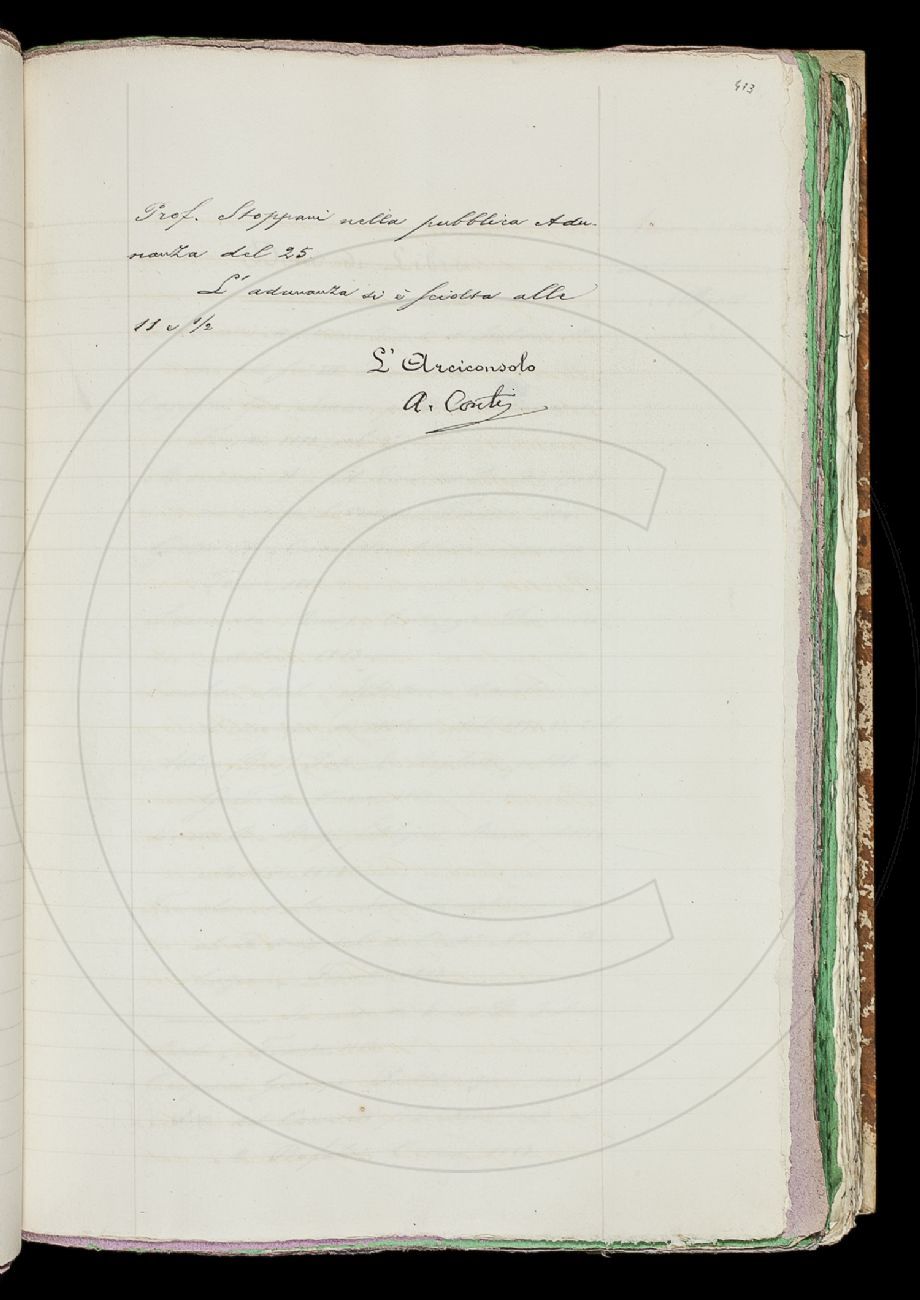 413
Prof. Stoppani nella pubblica Adu-
nanza del 25.
L' adunanza si è sciolta alle
11 e 1/2
L' Arciconsolo
A. Conti